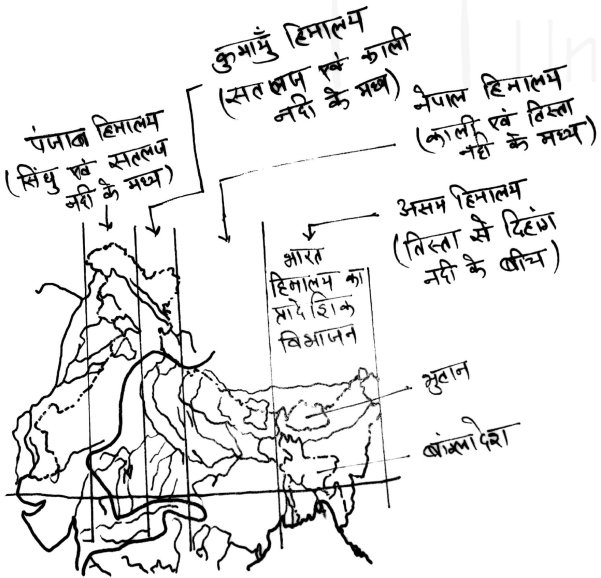 कुमायुँ हिमालय
(सतलज एवं काली
नदी के मध्य)
पंजाब हिमालय
(सिंधु एवं सतलज
नदी के मध्य)
नेपाल हिमालय
(काली एवं तिस्ता
नदी के मध्य)
असम हिमालय
(तिस्ता से दिहांग
नदी के बीच)
भारत
हिमालय का
प्रादेशिक
विभाजन
भुतान
बांग्लादेश